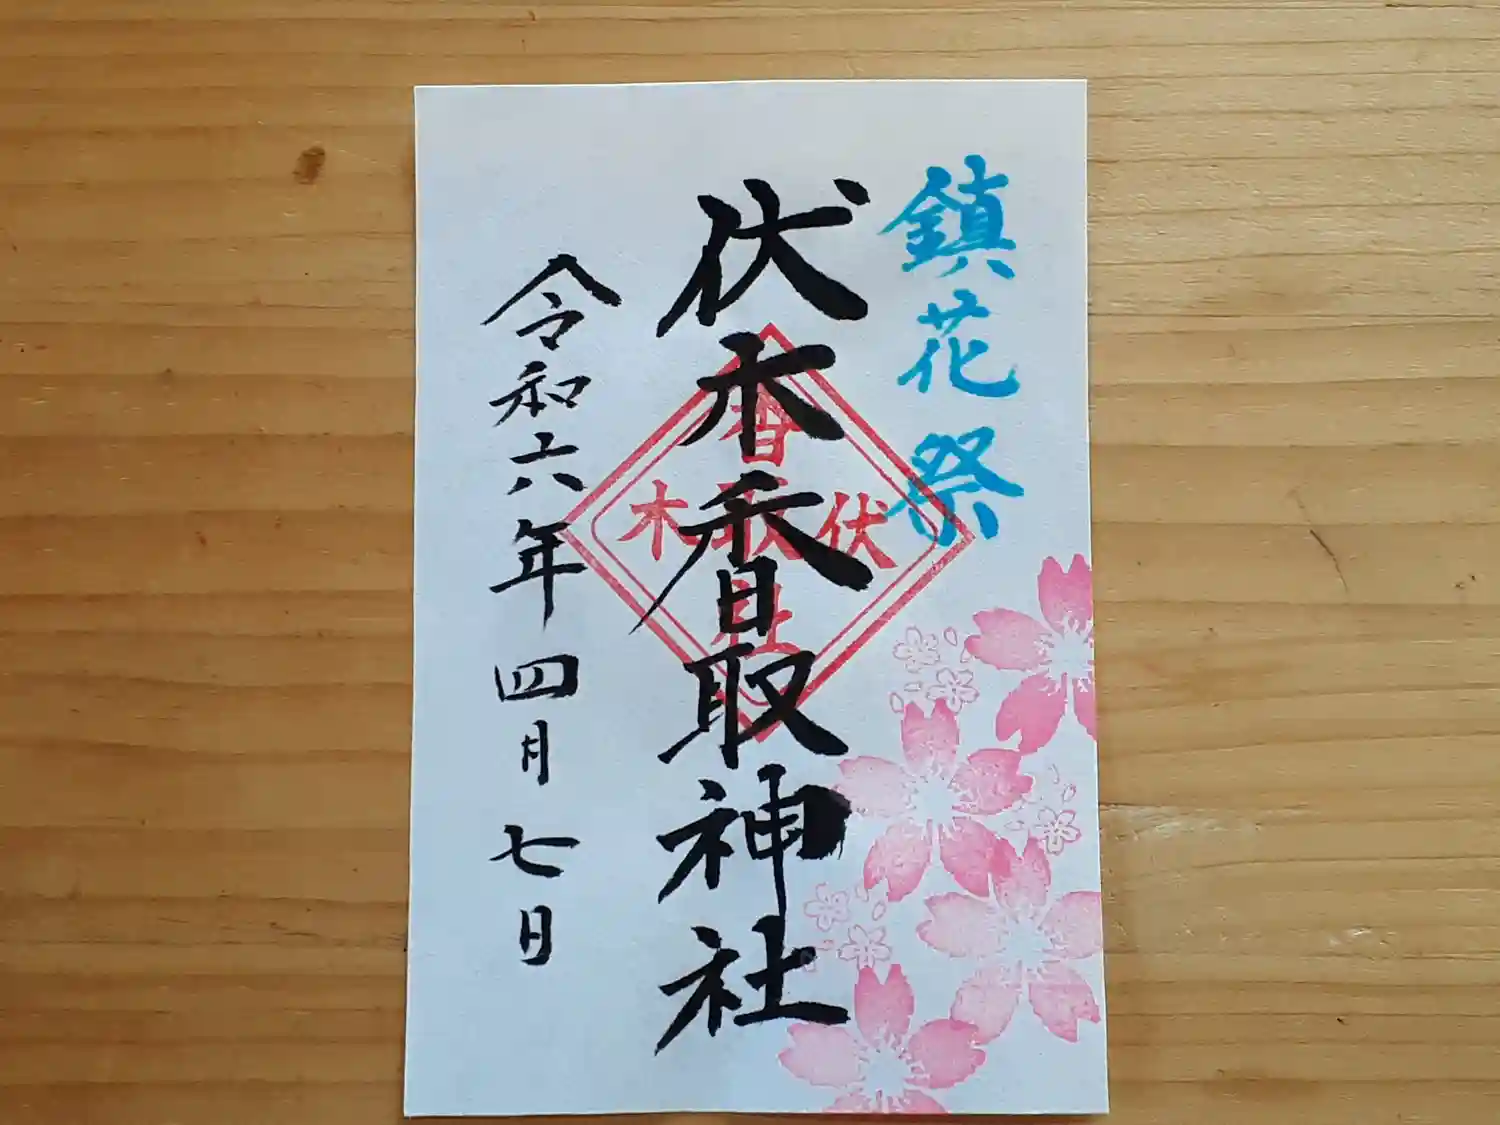 鎮花祭
伏木香取神社
令和六年四月七日
香
伏取木
社